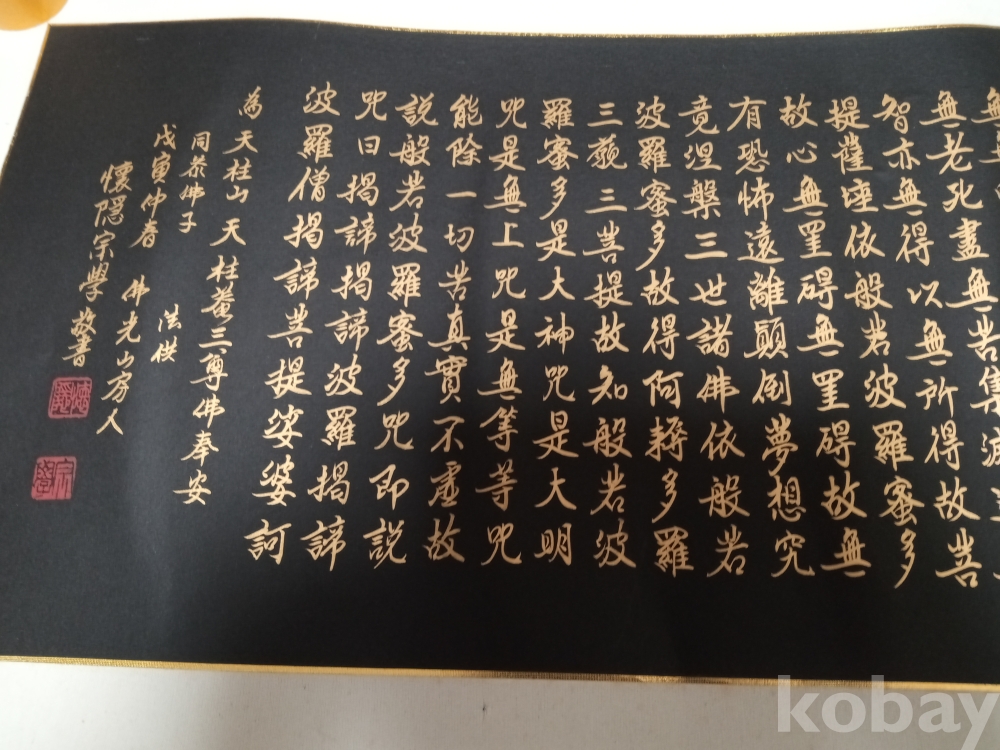 無老死盡無苦集滅
智亦無得以無所得故菩
提薩埵依般若波羅蜜多
故心無罣礙無罣礙故無
有恐怖遠離顛倒夢想究
竟涅槃三世諸佛依般若
波羅蜜多故得阿耨多羅
三藐三菩提故知般若波
羅蜜多是大神咒是大明
咒是無上咒是無等等咒
能除一切苦真實不虛故
說般若波羅蜜多咒即說
咒曰揭諦揭諦波羅揭諦
波羅僧揭諦菩提娑婆訶
為天柱山天柱菴三尊佛奉安
同恭佛子 法供
戊寅仲春 佛光山房人
懷隱宗學敬書
kobay